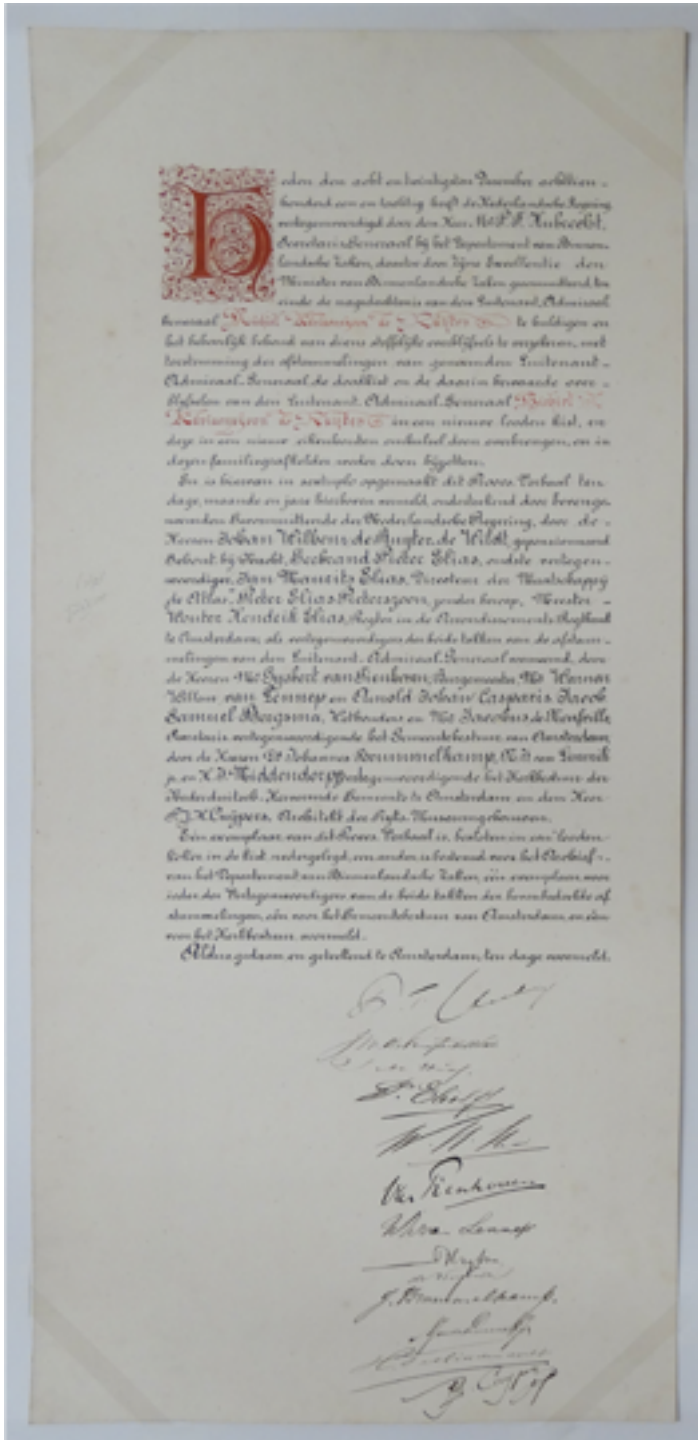 Heden den acht en twintigsten December achttien-
honderd een en tachtig heeft de Nederlandsche Regering
vertegenwoordigd door den Heer Mr P. F. Hubrecht,
Secretaris-Generaal bij het Departement van Binnen-
landsche Zaken, daartoe door Zijne Excellentie den
Minister van Binnenlandsche Zaken gemachtigd ten
einde de nagedachtenis van den Luitenant-Admiraal
Generaal Michiel Adriaanszoon de Ruyter te huldigen en
het behoorlijk behoud van diens stoffelijk overblijfsels te verzekeren, met
toestemming der afstammelingen van genoemden Luitenant-
Admiraal-Generaal de doodkist en de daarin bewaarde over-
blijfselen van den Luitenant-Admiraal-Generaal Michiel
Adriaanszoon de Ruyter in een nieuwe looden kist, en
deze in een nieuw eikenhouten omhulsel doen overbrengen, en in
dezen familiegrafkelder weder doen bijzetten.
En is hiervan in opgemaakt dit Proces-Verbaal ten
dage, maande en jare hierboven vermeld, onderteekend door bovenge-
noemden Gecommitteerde der Nederlandsche Regering, door de
Heeren Johan Wilhem de Ruyter de Wildt, gepensioneerd
bij Utrecht, Gerbrand Pieter Elias, oudste vertegen-
woordiger, Jan Maurits Elias, Directeur der Maatschappij
de Atlas, Pieter Elias Pieterszoon, zonder beroep, Meester
Wouter Hendrik Elias, Regter in de Arrondissements Regtbank
te Amsterdam, als vertegenwoordigers der beide takken van de afstam-
melingen van den Luitenant-Admiraal-Generaal voornoemd, door
de Heeren Mr Gijsbert van Tienhoven, Burgemeester, Mr Warner
Willem van Lennep en Arnold Johan Casparis Jacob
Samuel Bergsma, Wethouders en Mr Jacobus de Neufville,
Secretaris vertegenwoordigende het Gemeentebestuur van Amsterdam,
door de Heeren Ds Johannes Brummelkamp, van Lennik
jr. en H. J. Middendorp vertegenwoordigende het Kerkbestuur der
Nederduitsch Hervormde Gemeente te Amsterdam en den Heer
P. J. H. Cuijpers, Architekt der Rijks-Museumgebouwen.
Eén exemplaar van dit Proces-Verbaal is, besloten in een looden
koker in de kist nedergelegd, een ander is bestemd voor het Archief
van het Departement van Binnenlandsche Zaken, één exemplaar voor
ieder der Vertegenwoordigers van de beide takken der bovenbedoelde af-
stammelingen, één voor het Gemeentebestuur van Amsterdam, en één
voor het Kerkbestuur voormeld.
Aldus gedaan en geteekend te Amsterdam, ten dage voormeld.
Van Tienhoven
W W van Lennep
J. Brummelkamp.